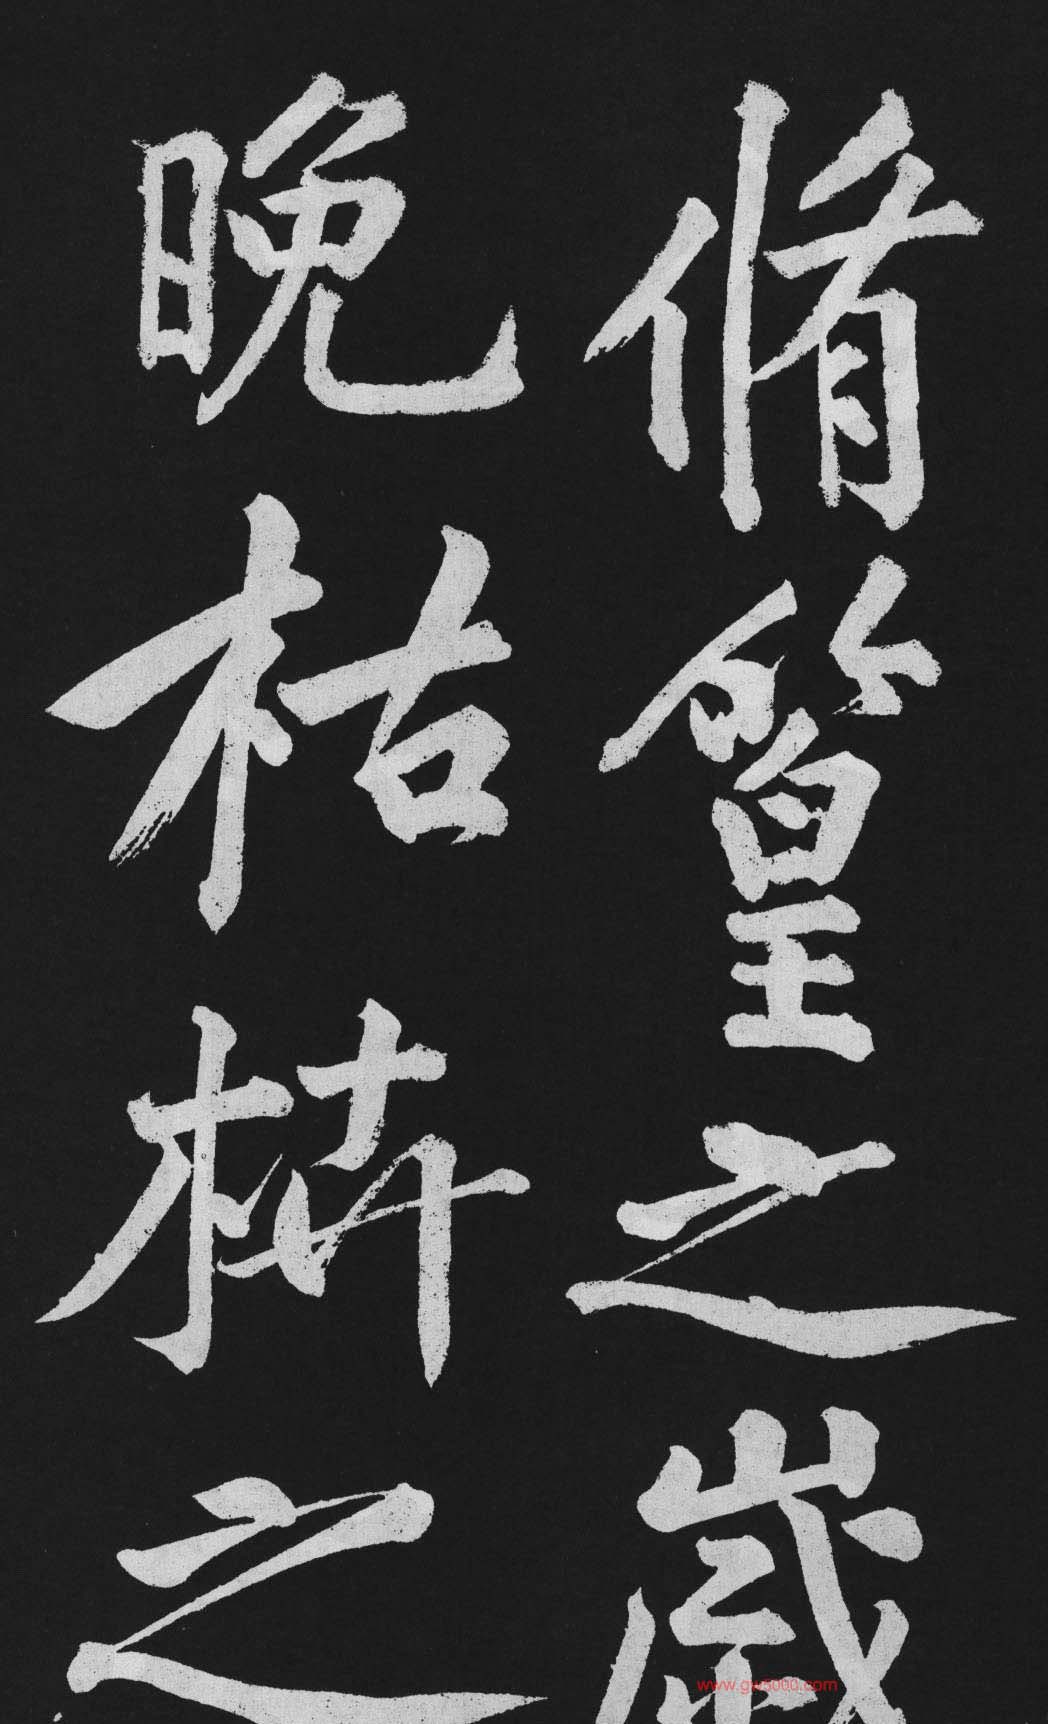 脩篁之歲
晚枯枿之
www.gw5000.com